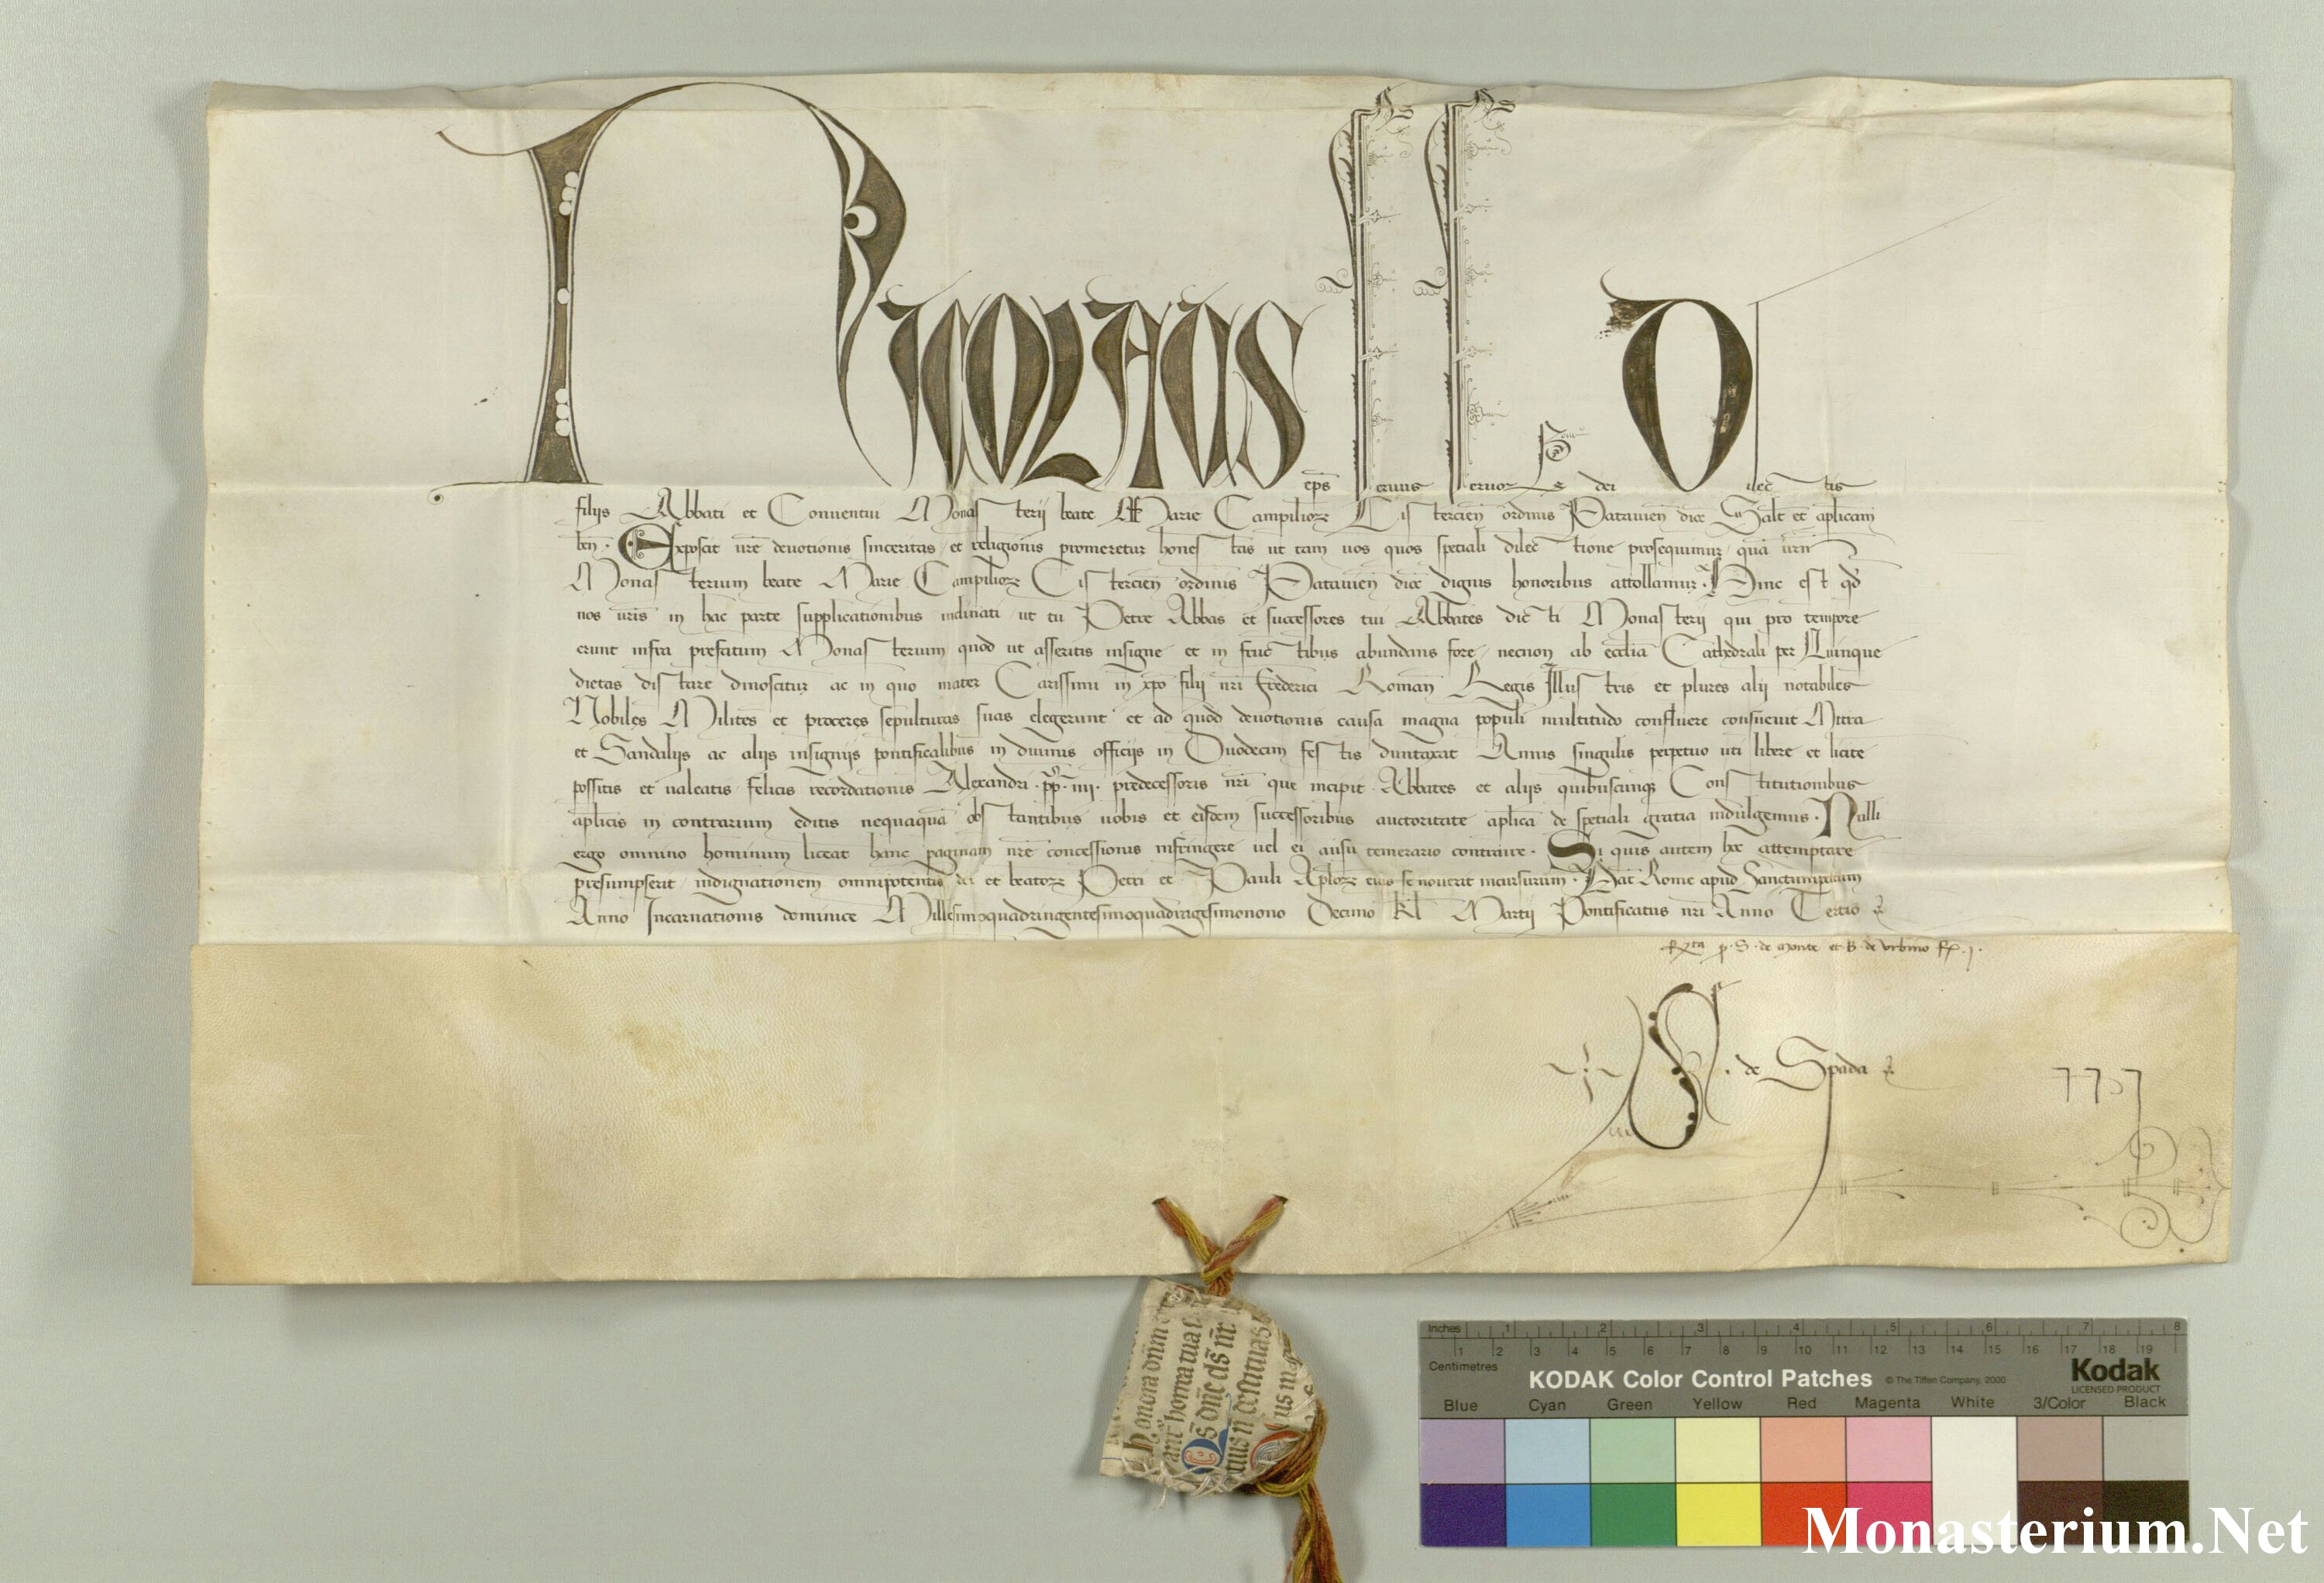 Nicolaus ep̄s seruus seruoꝝ dei Dilectis
filijs Abbati et Conuentui Monasterij beate Marie Campilioꝝ Cistercien̄ ordinis Patauien̄ dioc̄ Salt̄ et aplicam̄
ben̄. Exposcit ur̄e deuotionis sinceritas et religionis promeretur honestas ut tam uos quos speciali dilectione prosequimur quā ur̄m
Monasterium beate Marie Campilioꝝ Cistercien̄ ordinis Patauien̄ dioc̄ dignis honoribus attollamus. Hinc est qd̄
nos ur̄is in hac parte supplicationibus inclinati ut tu Petre Abbas et successores tui Abbates dicti Monasterij qui pro tempore
erunt infra prefatum Monasterium quod ut asseritis insigne et in fructibus abundans fore necnon ab ecclīa Cathedrali per Quinque
dietas distare dinoscitur ac in quo mater Carissimi in xp̄o filij nr̄i Frederici Roman̄ Regis Illustris et plures alij notabiles
Nobiles Milites et proceres sepulturas suas elegerunt et ad quod deuotionis causa magna populi multitudo confluere consueuit Mitra
et Sandalijs ac alijs insignijs pontificalibus in diuinis officijs in Duodecim festis duntaxat Annis singulis perpetuo uti libere et licite
possitis et ualeatis felicis recordationis Alexandri . pp̄ . iiij . predecessoris nr̄i que incipit Abbates et alijs quibuscunqꝫ Constitutionibus
aplicis in contrarium editis nequaquā obstantibus uobis et eisdem successoribus auctoritate aplica de speciali gratia indulgemus. Nulli
ergo omnino hominum liceat hanc paginam nr̄e concessionis infringere uel ei ausu temerario contraire. Si quis autem hoc attemptare
presumpserit indignationem omnipotentis dei et beatoꝝ Petri et Pauli Aploꝝ eius se nouerit incursurum. Dat̄ Rome apud Sanctumpetrum
Anno Incarnationis dominice Millesimoquadringentesimoquadragesimonono Decimo kl̄ Martij Pontificatus nr̄i Anno Tertio
p. S. de monte et B. de vrbino
. de Spada
honora dn̄m
hona tua
dn̄c ds̄ nr̄
destituas
Inches 1 2 3 4 5 6 7 8
1 2 3 4 5 6 7 8 9 10 11 12 13 14 15 16 17 18 19
Centimetres
KODAK Color Control Patches © The Tiffen Company, 2000
Kodak
LICENSED PRODUCT
Blue Cyan Green Yellow Red Magenta White 3/Color Black
Monasterium.Net